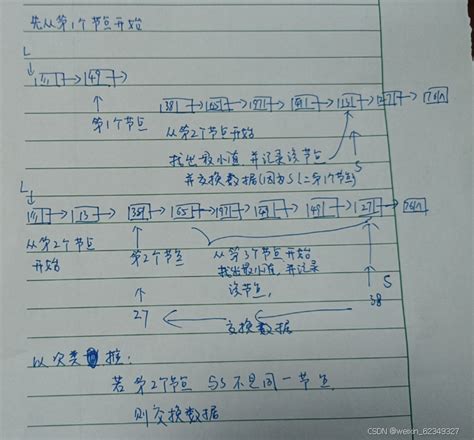 先从第1个节点开始
L
49
第1个节点
38 65 97 49 13 27
从第2个节点开始
找出最小值,并记录该节点 S
并交换数据(因为S!=第1个节点)
L
13 38 65 97 49 49 27
从第2个节点 第2个节点 从第3个节点开始
开始 找出最小值,并记录
该节点, S
27 交换数据 38
以次类推:
若第2个节点与S不是同一节点
则交换数据
CSDN @weixin_62349327